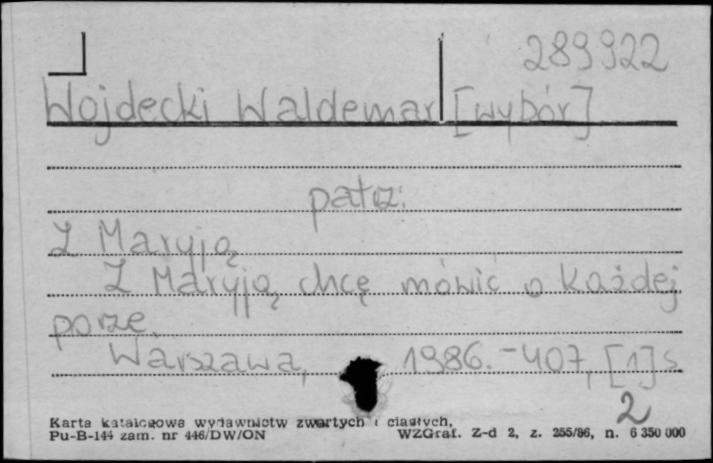 289922
Wojdecki Waldemar [wybór]
patrz:
Z Maryją
Z Maryją chcę mówić o każdej
porze.
Warszawa, 1986. - 407, [1] s.
2
Karta katalogowa wydawnictw zwartych i ciągłych,
Pu-B-144 zam. nr 446/DW/ON WZGraf. Z-d 2, z. 255/86, n. 6 350 000